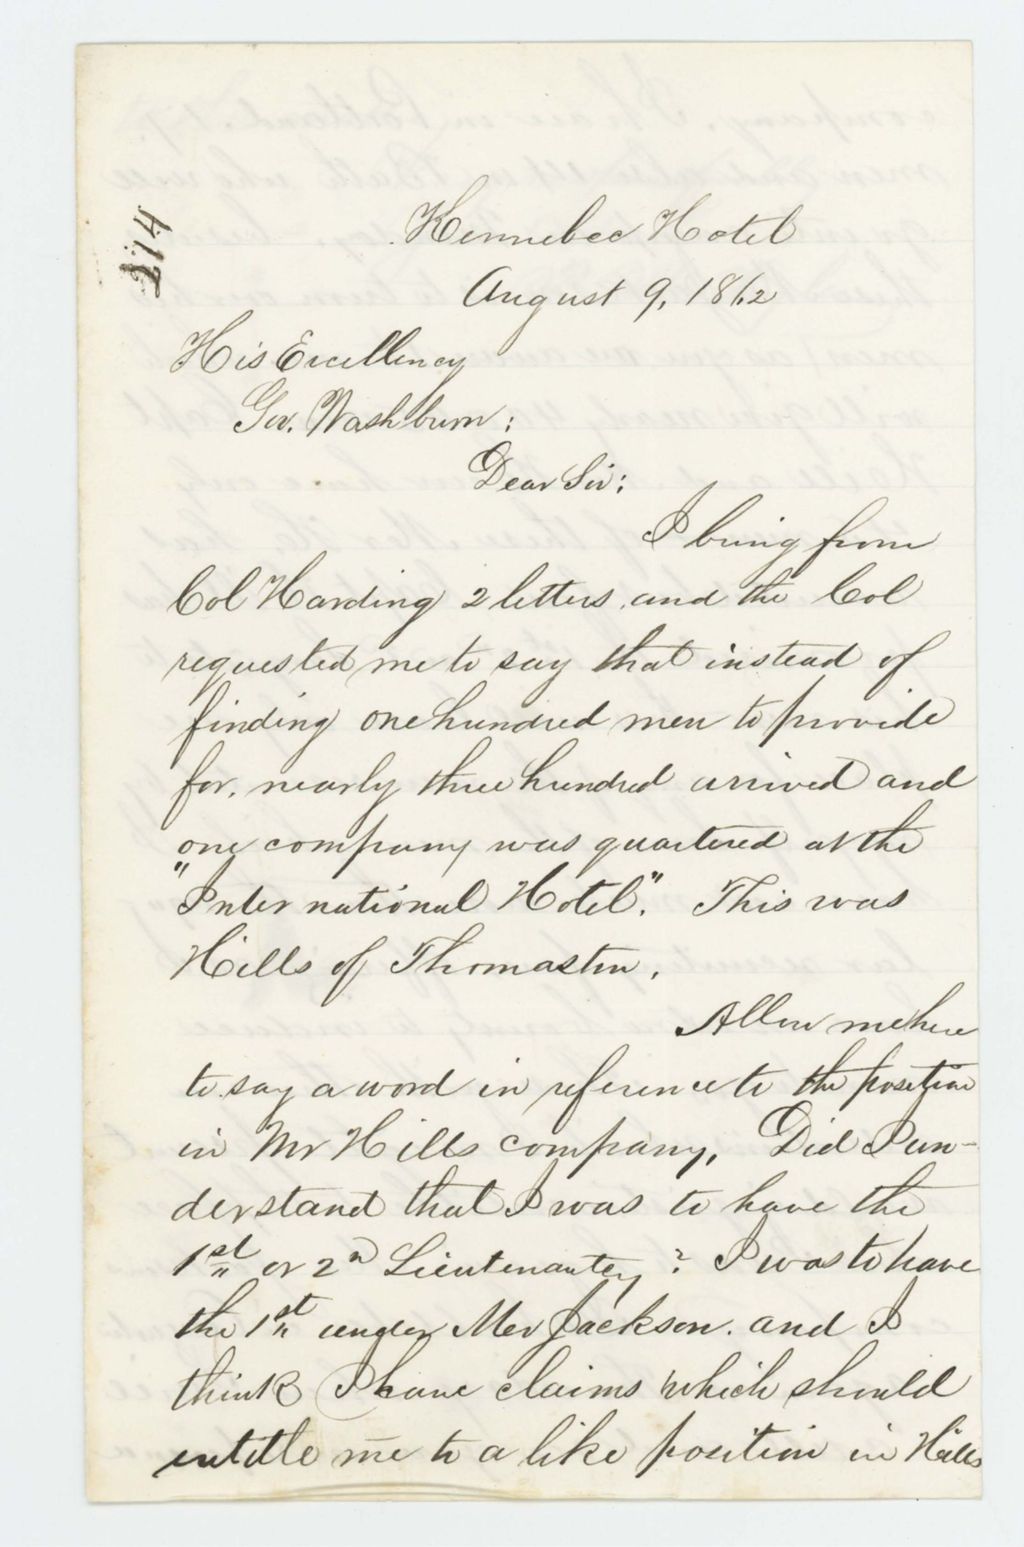 214
Kennebec Hotel
August 9, 1862
His Excellency
Gov. Washburn:
Dear Sir:
I bring from
Col Harding 2 letters, and the Col
requested me to say that instead of
finding one hundred men to provide
for, nearly three hundred arrived and
one company was quartered at the
"International Hotel". This was
Hills of Thomaston.
Allow me here
to say a word in reference to the position
in Mr Hills company. Did I un-
derstand that I was to have the
1st or 2n Lieutenantcy? I was to have
the 1st under Mer Jackson. and I
think I have claims which should
entitle me to a like position in Hills